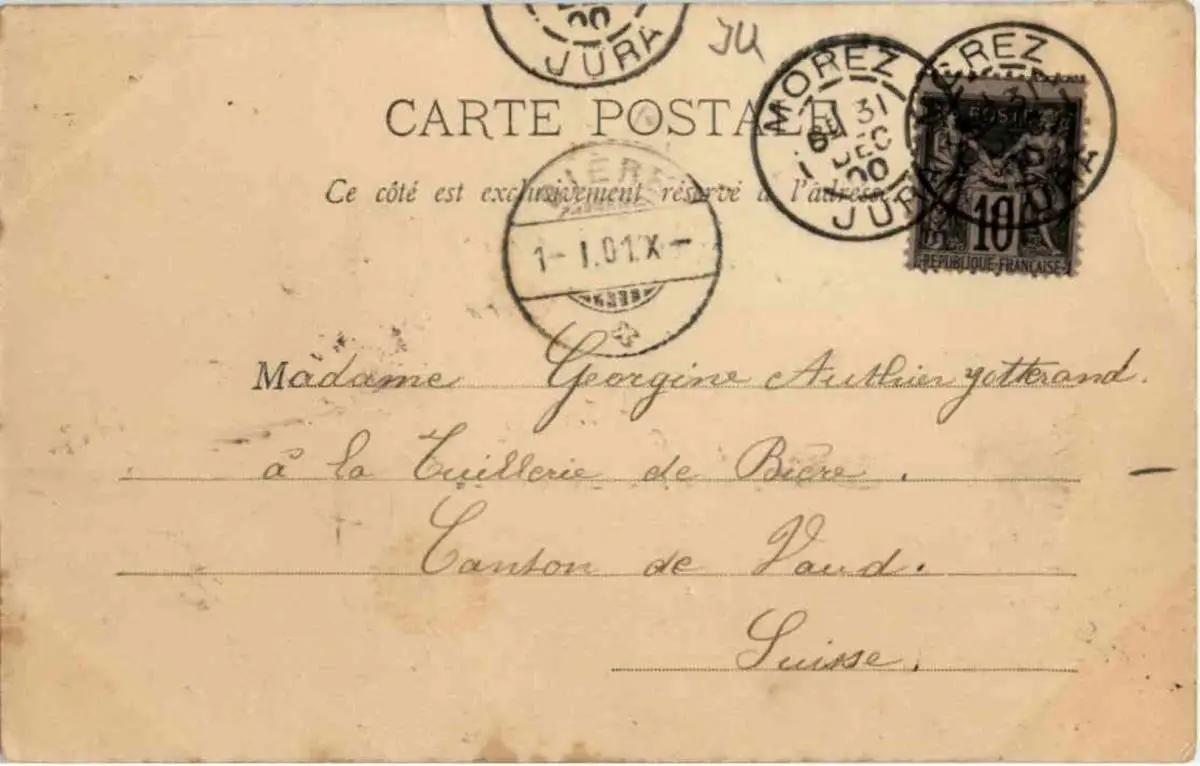 00
JURA
JU
CARTE POSTALE
MOREZ
31
DEC
00
JURA
MOREZ
31
JURA
POSTE
10
REPUBLIQUE FRANÇAISE
Ce côté est exclusivement réservé à l'adresse
BIÈRE
1- I.01.X-
Madame Georgine Authier yotterand.
à la Tuillerie de Bière.
Canton de Vaud.
Suisse.